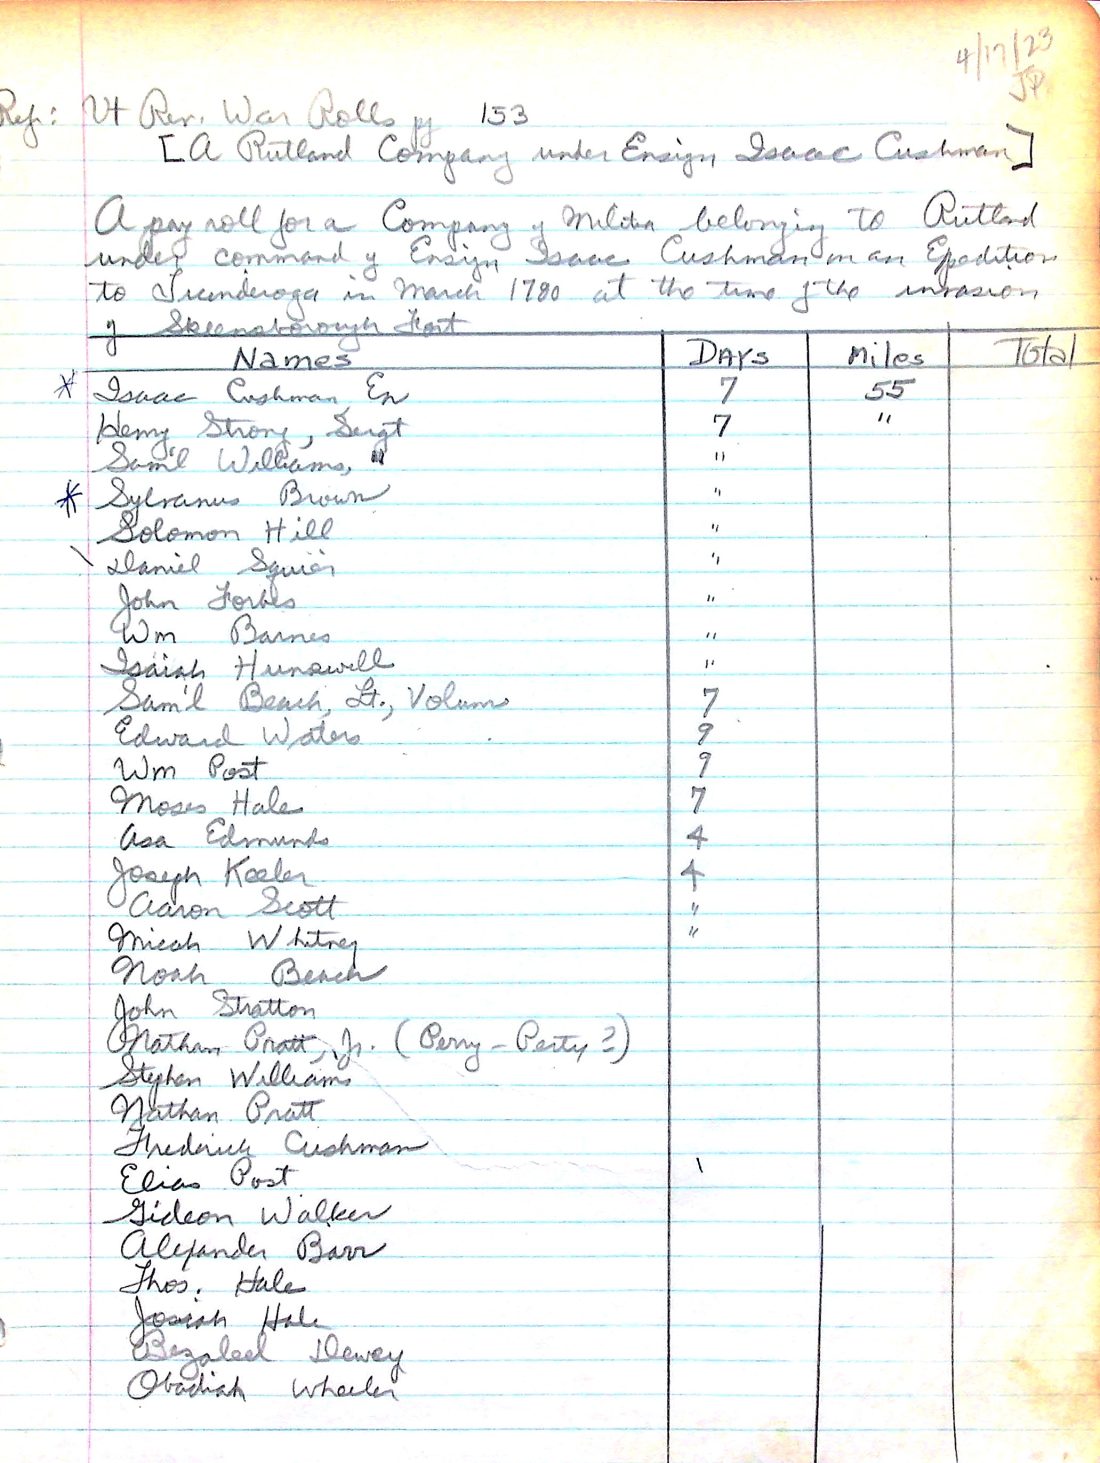 4/17/23
JP
Ref: Vt Rev. War Rolls pg 153
[A Rutland Company under Ensign Isaac Cushman]
A pay roll for a Company of Militia belonging to Rutland
under command of Ensign Isaac Cushman on an Epedition
to Ticonderoga in March 1780 at the time of the invasion
of Skeensborough Fort
Names Days Miles Total
* Isaac Cushman En 7 55
Henry Strong, Sergt 7 "
Sam'l Williams, " "
* Sylvanus Brown "
Solomon Hill "
\ Daniel Squier "
John Forbes "
Wm Barnes "
Isaiah Hunswill "
Sam'l Beach, Lt., Volum 7
Edward Waters 9
Wm Post 9
Moses Hale 7
Asa Edmunds 4
Joseph Keeler 4
Aaron Scott "
Micah Whitney "
Noah Beach
John Stratton
Nathan Pratt, Jr. (Perry - Perty?)
Stephen Williams
Nathan Pratt
Frederick Cushman
Elias Post
Gideon Walker
Alexander Barr
Thos. Hale
Josiah Hale
Bezaleel Dewey
Obadiah Wheeler